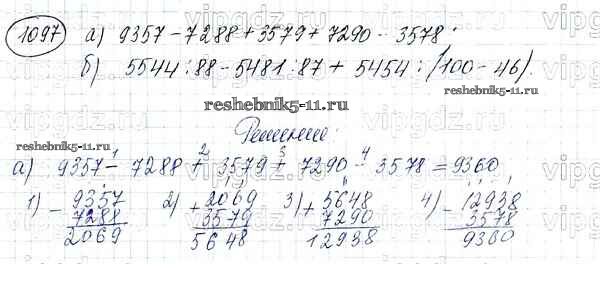 1097 а) 9357 – 7288 + 3579 + 7290 – 3578.
б) 5544 : 88 – 5481 : 87 + 5454 : (100 – 46).
reshebnik5-11.ru
reshebnik5-11.ru
Решение:
1 2 3 4
а) 9357 – 7288 + 3579 + 7290 – 3578 = 9360
1) – 9357 2) + 2069 3) + 5648 4) – 12938
7288 3579 7290 3578
2069 5648 12938 9360
vipgdz.ru